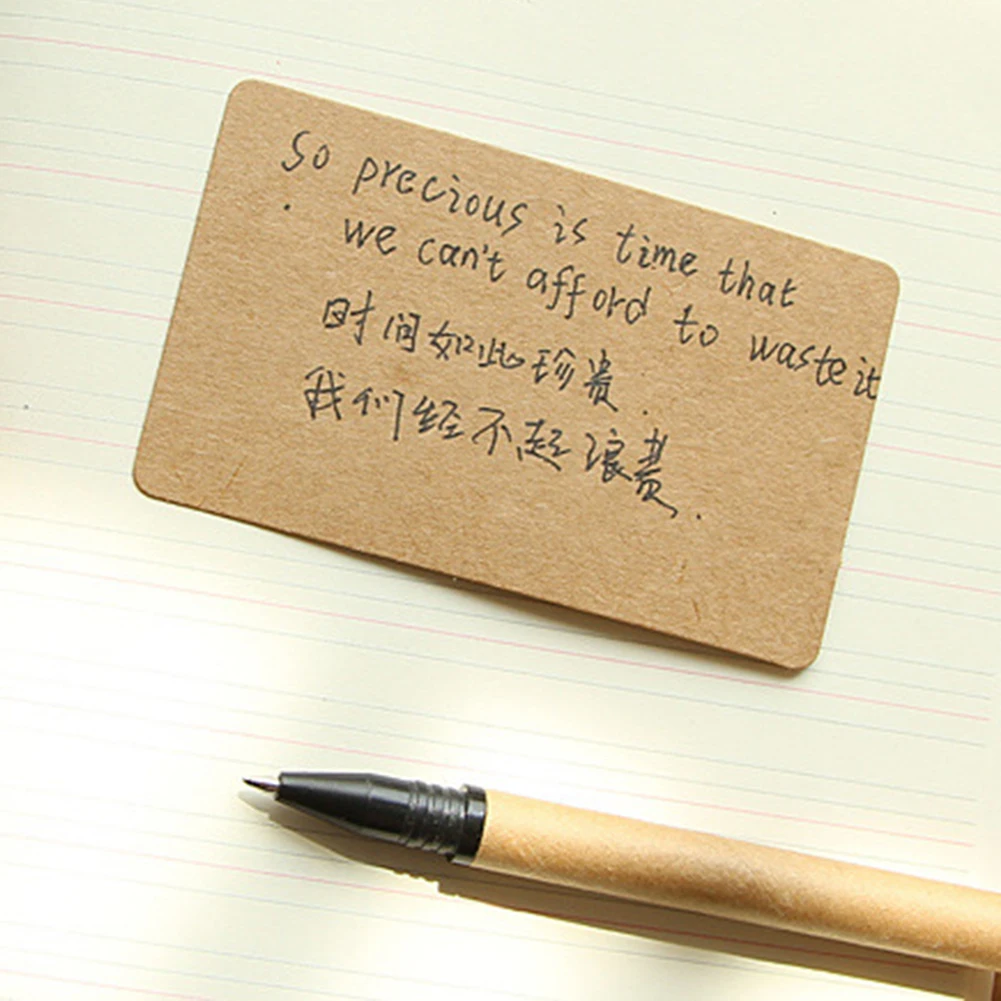 So precious is time that
we can't afford to waste it
时间如此珍贵.
我们经不起浪费.